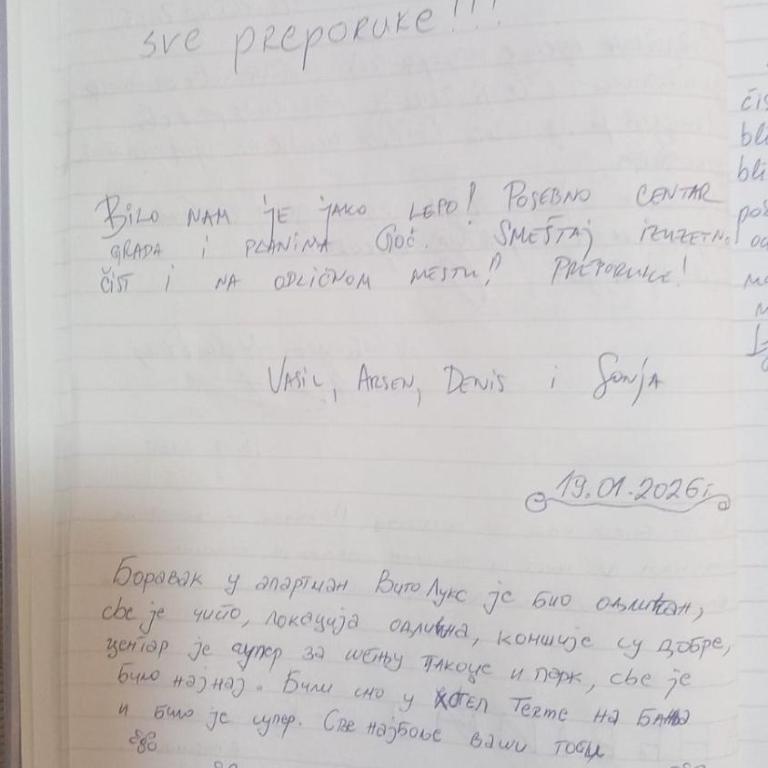 sve preporuke!!!
BILO NAM JE JAKO LEPO! POSEBNO CENTAR
GRADA I PLANINA GOČ. SMEŠTAJ IZUZETNO
ČIST I NA ODLIČNOM MESTU! PREPORUKE!
VASIL, ARSEN, DENIS i SONJA
19.01.2026г.
Боравак у апартман Вито Лукс је био одличан,
све је чисто, локација одлична, коншије су добре,
центар је супер за шетњу плоце и парк, све је
било најнај. Били смо у хотел Терме на Бања
и било је супер. Све најбоље ваши гости
čis
bl
bli
poš
od